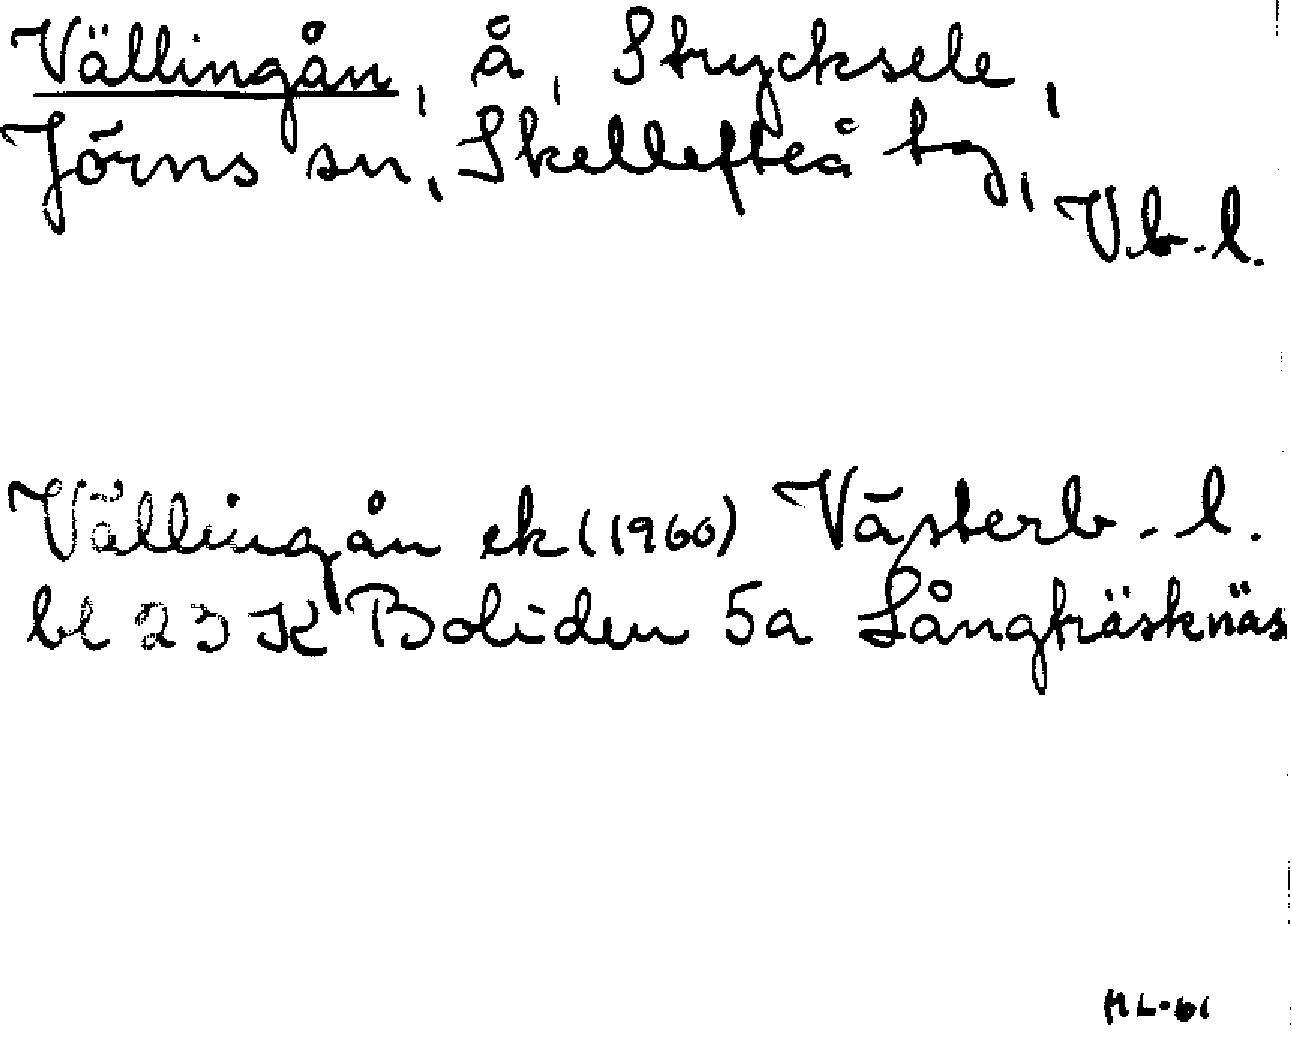 Vällingån, å, Strycksele,
Jörns sn, Skellefteå tg,
Vb.l.
Vällingån ek (1960) Västerb.l.
bl 23 K Boliden 5a Långträsknäs
HL-61